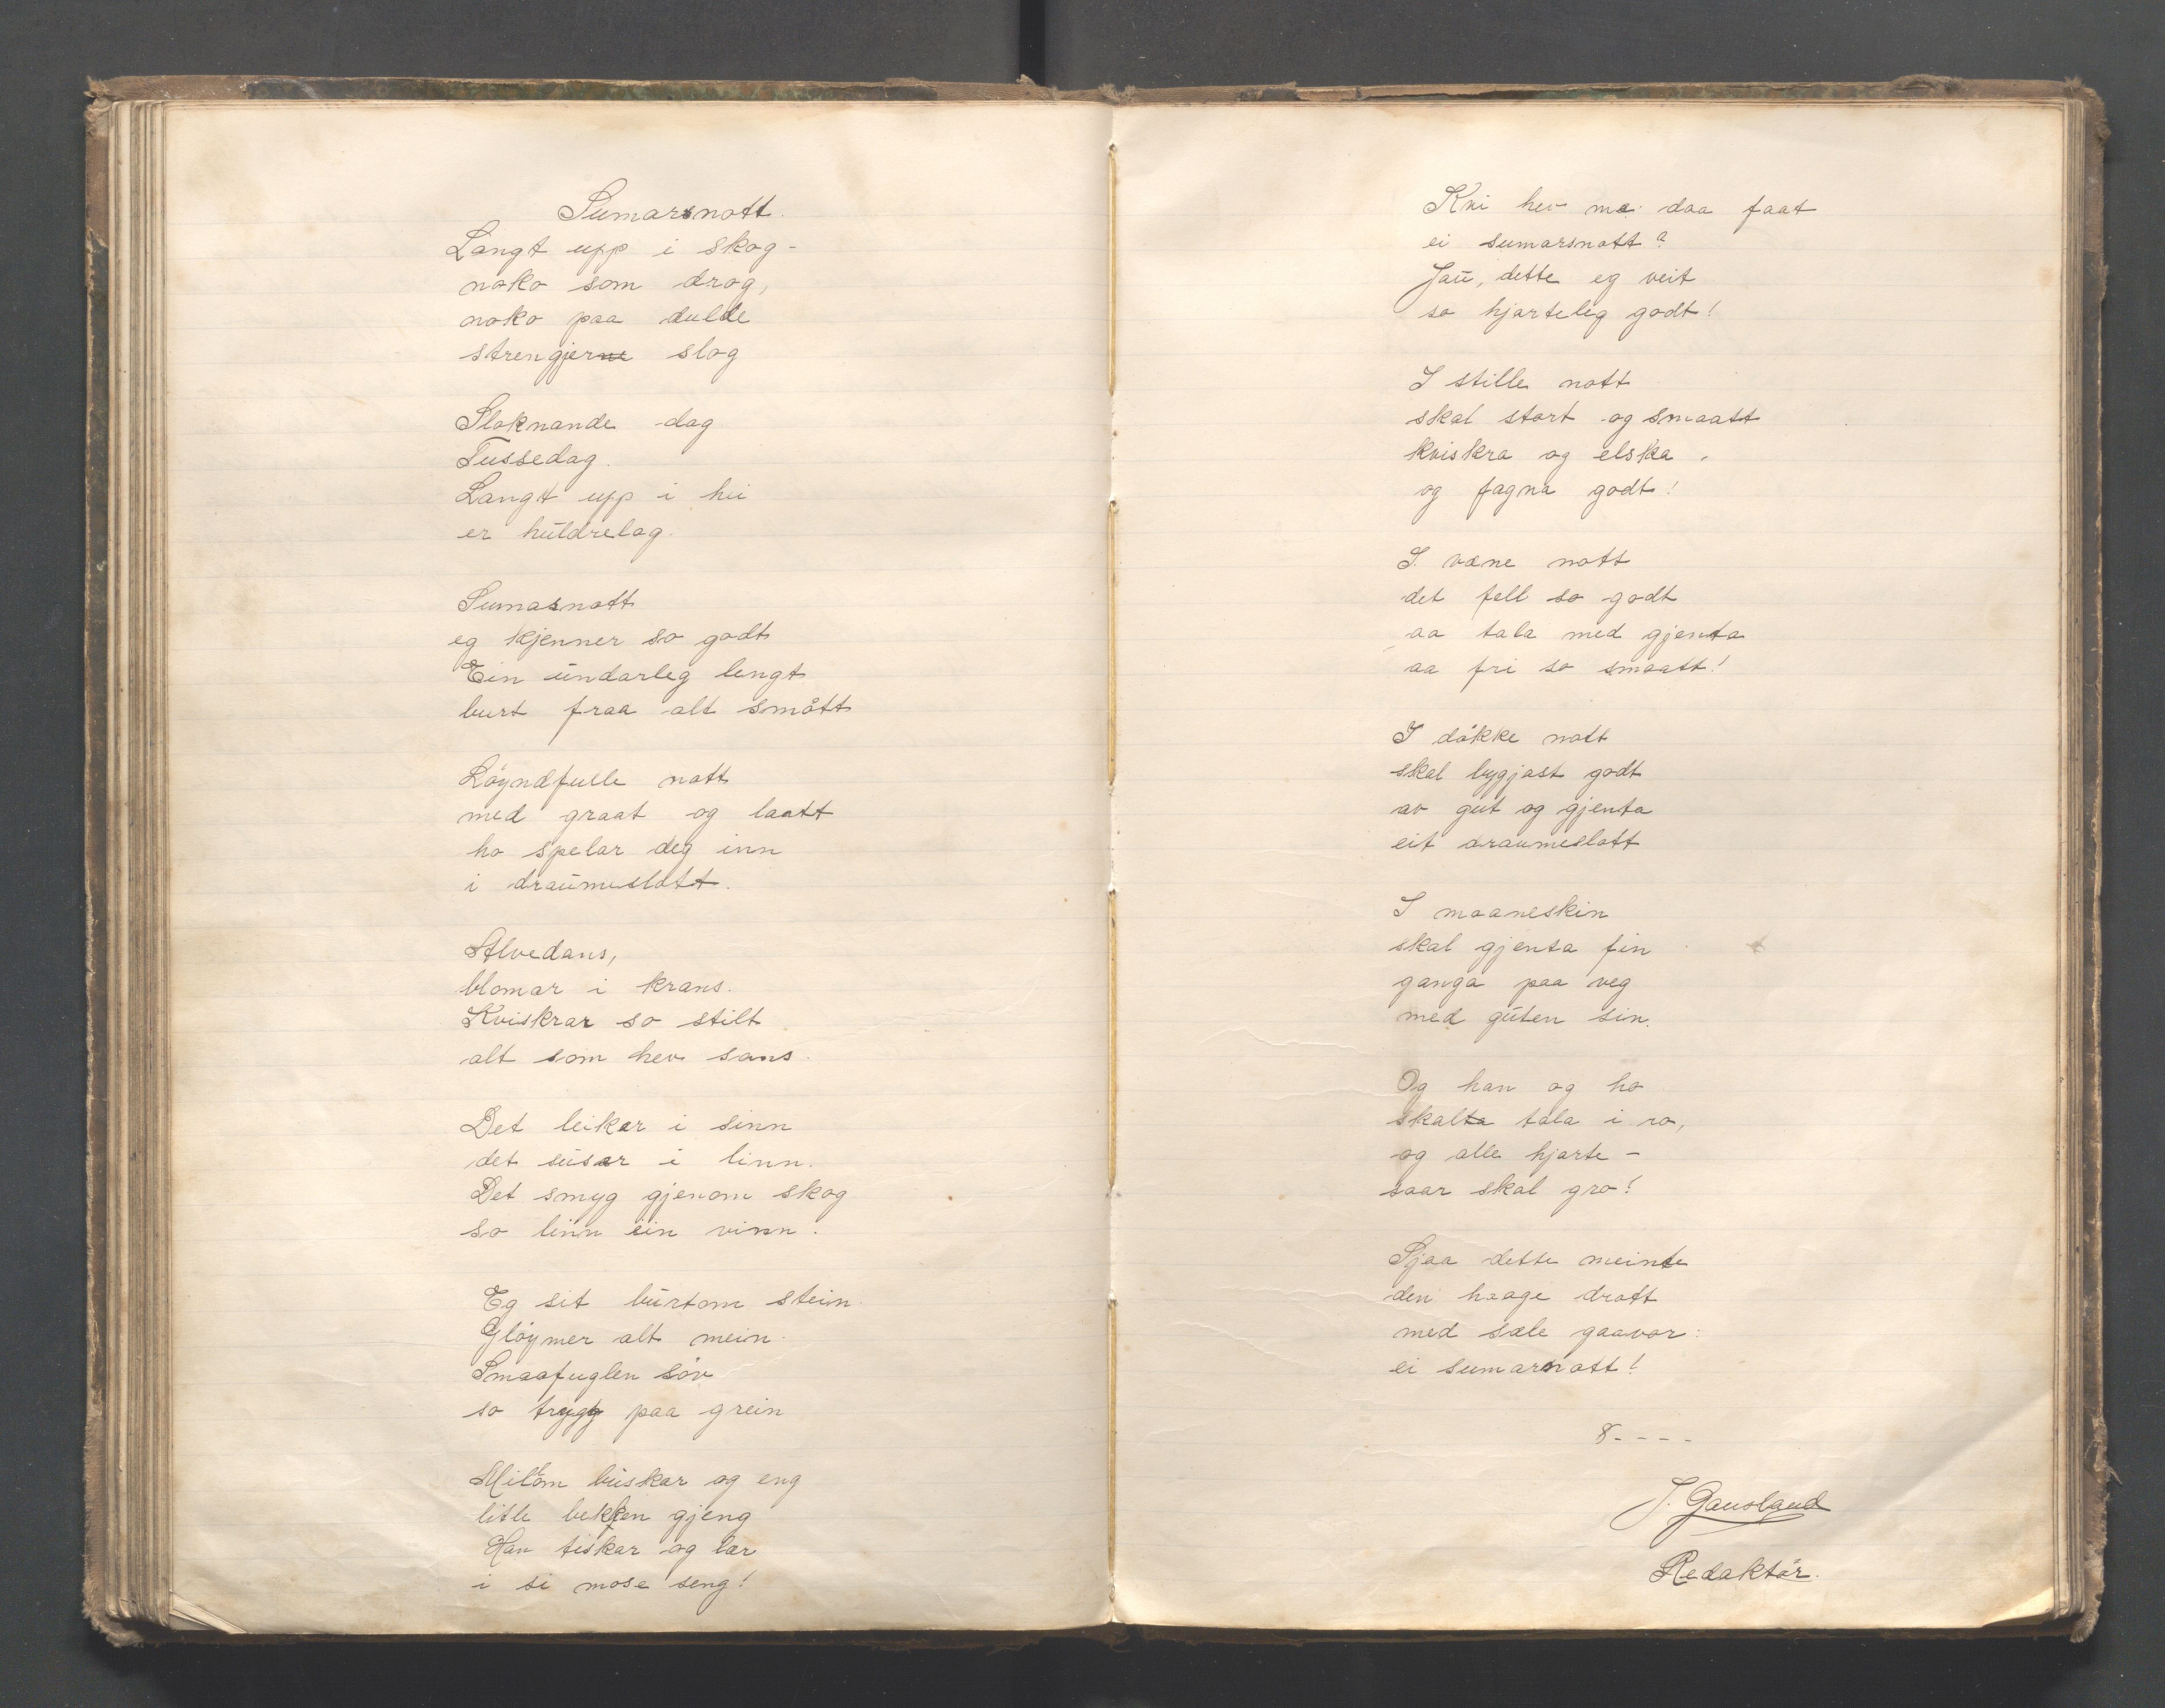 Sumarsnott.
Langt upp i skog -
noko som drog,
noko paa dulde
strengjerne slog
Sloknande dag
Tussedag.
Langt upp i hei
er huldrelag.
Sumarnott
eg kjenner so godt
Ein undarleg lengt
burt fraa alt smått
Löyndfulle nott
med graat og laatt
ho spelar deg inn
i draumeslott.
Alvedans,
blomar i krans.
Kviskrar so stilt
alt som hev sans.
Det leikar i sinn
det susar i linn.
Det smyg gjenom skog
so linn ein vinn.
Eg sit burtom stein.
Gløymer alt mein.
Smaafuglen söv
so trygg paa grein
Millom buskar og eng
litle bekken gjeng
Han tiskar og lær
i si mose seng!
Kvi hev me daa faat
ei sumarsnott?
Jau, dette eg veit
so hjarteleg godt!
I stille nott
skal stort og smaatt
kviskra og elska
og fagna godt!
I væne nott
det fell so godt
aa tala med gjenta
aa fri so smaatt!
I dökke nott
skal bygjast godt
av gut og gjenta
eit draumeslott
I maaneskin
skal gjenta fin
ganga paa veg
med guten sin.
Og han og ho
skal ta tala i ro,
og alle hjarte -
saar skal gro!
Sjaa dette meinte
den haage drott
med sæle gaavor:
ei sumarnott!
8----
J. Gausland
Redaktör.